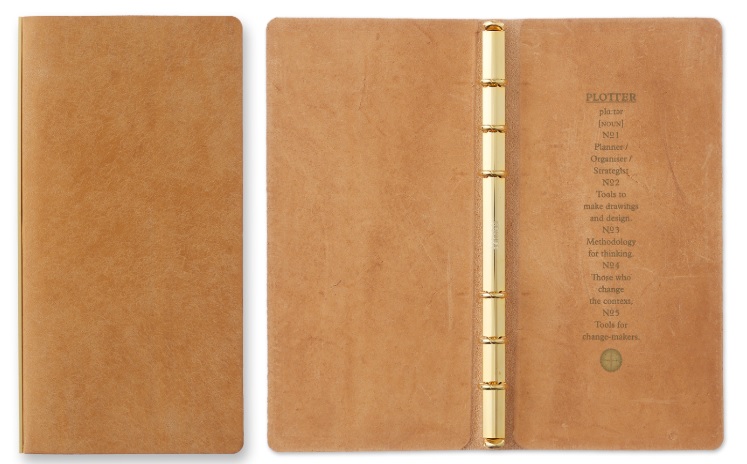 PLOTTER
plɑ́tər
[NOUN]
№1
Planner /
Organizer /
Strategist
№2
Tools to
make drawings
and design.
№3
Methodology
for thinking.
№4
Those who
change
the context.
№5
Tools for
change-makers.